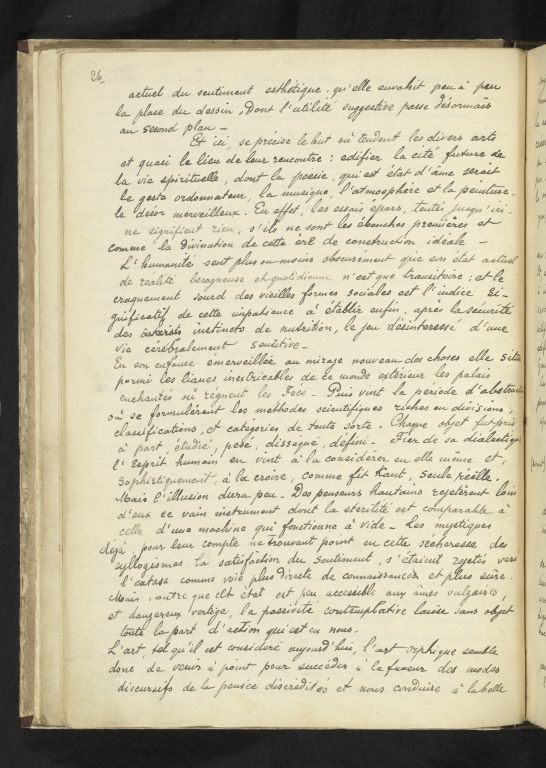 26
actuel du sentiment esthétique, qu'elle envahit peu à peu
la place du dessin, dont l'utilité suggestive passe désormais
au second plan —
Et ici, se précise le but où tendent les divers arts
et quasi le lieu de leur rencontre : edifier la cité future de
la vie spirituelle, dont la poésie, qui est état d'ame serait
le geste ordonnateur, la musique, l'atmosphère et la peinture.
le décor merveilleux. En effet, les essais épars, tentés jusqu'ici,
ne signifient rien, s'ils ne sont les ébauches premières et
comme la divination de cette art de construction idéale —
L'humanité sent plus ou moins obscurement que son état actuel
de réalité besogneuse et quotidienne n'est que transitoire : et le
craquement sourd des vieilles formes sociales est l'indice si-
gnificatif de cette impatience à établir enfin, après la sécurité
des instincts de nutrition, le jeu désinteressé d'une
vie cérébralement sensitive —
En son enfance émerveillée au mirage nouveau des choses elle situa
parmi les lianes inextricables de ce monde extérieur les palais
enchantés où regnent les Fées — Puis vint la période d'abstraction
où se formulèrent les méthodes scientifiques riches en divisions,
classifications, et categories de toute sorte. Chaque objet fut pris
à part, étudié, pesé, disséqué, défini — Fier de sa dialectique
l'Esprit humain en vint à la considérer en elle même et,
sophistiquement, à la croire, comme fit Kant, seule réelle.
Mais l'illusion dura peu — Des penseurs hautains rejetèrent loin
d'eux ce vain instrument dont la sterilité est comparable à
celle d'une machine qui fonctionne à vide — Les mystiques
déjà, pour leur compte ne trouvant point en cette sécheresse des
syllogismes la satisfaction du sentiment, s'étaient rejetés vers
l'extase comme voie plus directe de connaissance et plus sure.
Mais, outre que cet état est peu accessible aux ames vulgaires,
et dangereux vertige, la passivité contemplative laisse sans objet
toute la part d'action qui est en nous.
L'art, tel qu'il est considéré aujourd'hui, l'art orphique semble
donc de venir à point pour succéder à la faveur des modes
discursifs de la pensée discrédités et nous conduire à la belle